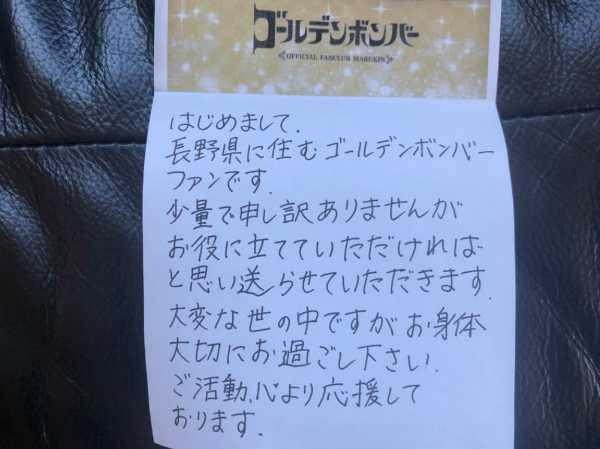 ゴールデンボンバー
OFFICIAL FANCLUB MARUKIN
はじめまして.
長野県に住むゴールデンボンバー
ファンです.
少量で申し訳ありませんが
お役に立てていただければ
と思い送らせていただきます.
大変な世の中ですがお身体
大切にお過ごし下さい.
ご活動、心より応援して
おります.